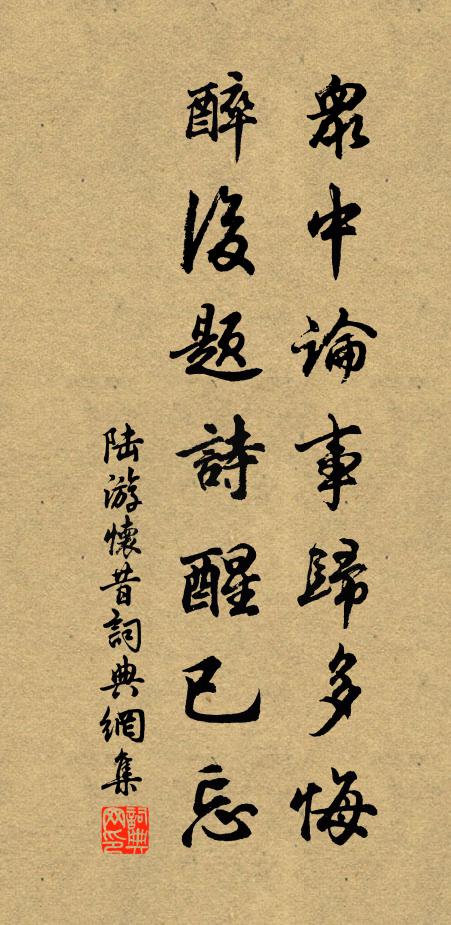 眾中論事歸多悔
醉後題詩醒已忘
陸游懷昔詞典網集
詞典網印